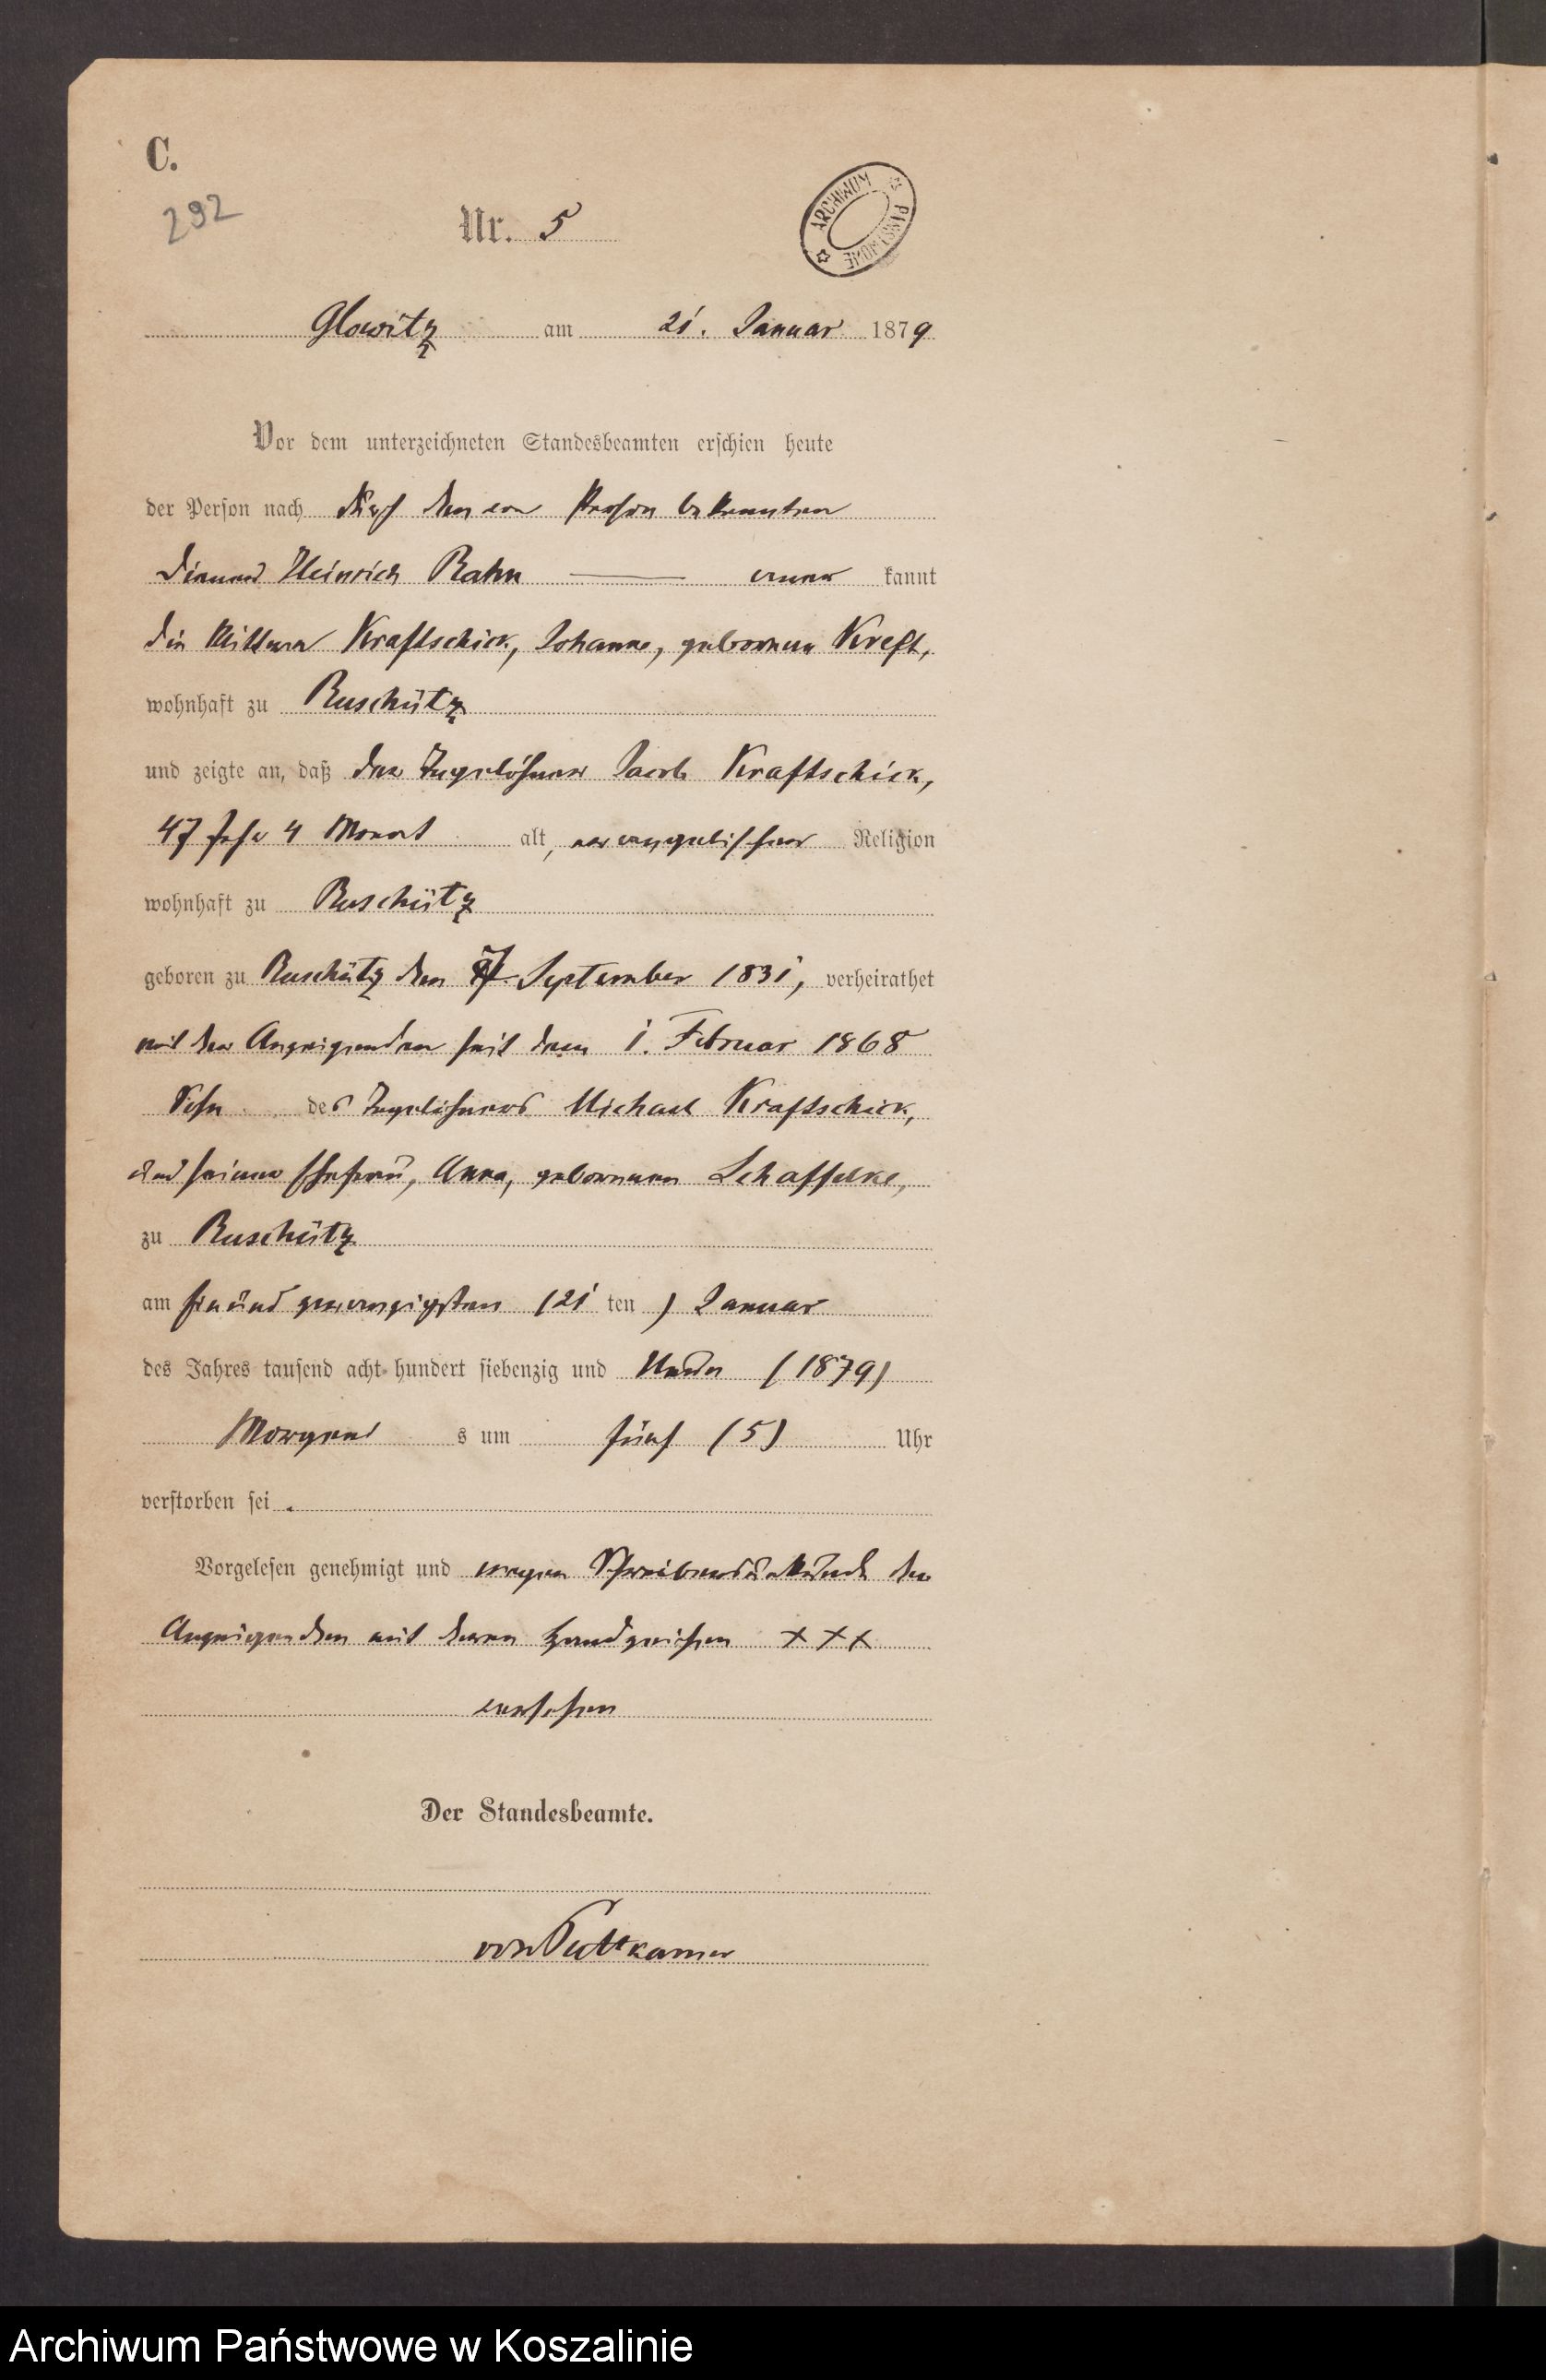 C.
292
Nr. 5
ARCHIWUM PAŃSTWOWE
Glowitz am 21. Januar 1879
Vor dem unterzeichneten Standesbeamten erschien heute
der Person nach durch den von Person bekannten
Diener Heinrich Rahn kannt
die Wittwe Kraftschick, Johanne, geborene Kreft,
wohnhaft zu Ruschütz
und zeigte an, daß der Tagelöhner Jacob Kraftschick,
47 Jahr 4 Monat alt, evangelischer Religion
wohnhaft zu Ruschütz
geboren zu Ruschütz den 7. September 1831, verheirathet
mit der Anzeigenden seit dem 1. Februar 1868
Sohn des Tagelöhners Michael Kraftschick,
und seiner Ehefrau, Anna, geborenen Schaffelke,
zu Ruschütz
am ein und zwanzigsten (21 ten) Januar
des Jahres tausend acht hundert siebenzig und Neun (1879)
Morgens um fünf (5) Uhr
verstorben sei.
Vorgelesen genehmigt und wegen Schreibensunkunde der
Anzeigenden mit deren Handzeichen XXX
versehen
Der Standesbeamte.
von Puttkamer
Archiwum Państwowe w Koszalinie